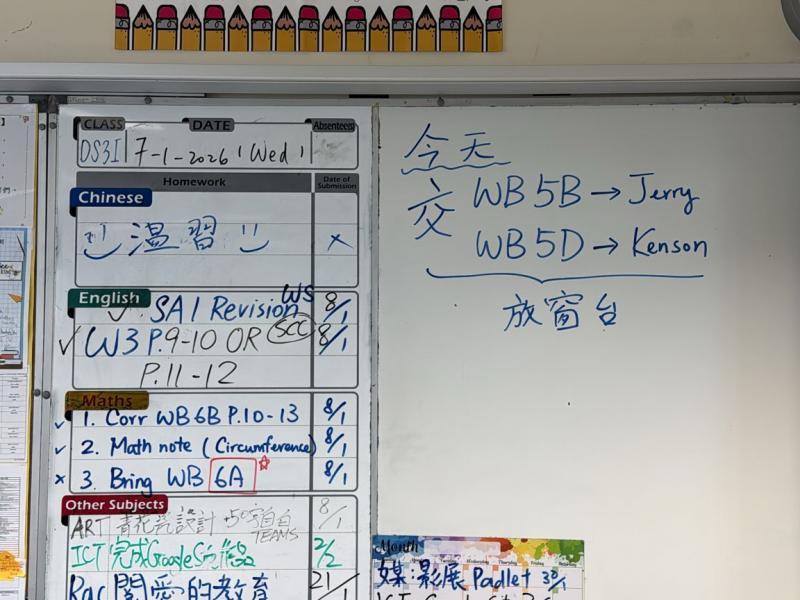 CLASS DATE Absentees
DS3I 7-1-2026 (Wed)
Homework Date of Submission
Chinese
温習 ×
English
SA1 Revision WS 8/1
✓ W3 P.9-10 OR SCC 8/1
P.11-12
Maths
✓ 1. Corr WB6B P.10-13 8/1
✓ 2. Math note (Circumference) 8/1
× 3. Bring WB 6A ☆ 8/1
Other Subjects
ART 青花瓷設計 +50字自白 8/1
TEAMS
ICT 完成Google 2/2
關愛的教育 21/1
今天
交 WB 5B → Jerry
WB 5D → Kenson
放窗台
Month
影展 Padlet 30/1